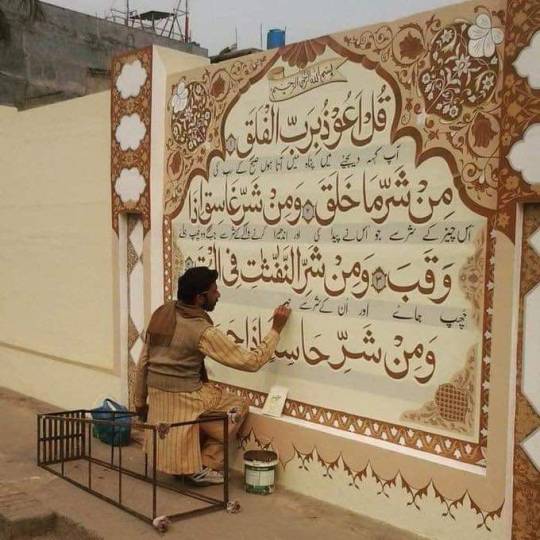 بسم الله الرحمن الرحيم
قُلْ اَعُوْذُ بِرَبِّ الْفَلَقِ ۱
آپ کہہ دیجئے میں پناہ میں آتا ہوں صبح کے رب کی
مِنْ شَرِّ مَا خَلَقَ ۲ وَمِنْ شَرِّ غَاسِقٍ اِذَا
اس چیز کے شر سے جو اس نے پیدا کی اور اندھیرا کرنے والے کے شر سے جب
وَقَبَ ۳ وَمِنْ شَرِّ النَّفّٰثٰتِ فِى الْعُقَدِ
چھپ جائے اور ان کے شر سے
وَمِنْ شَرِّ حَاسِدٍ اِذَا حَ